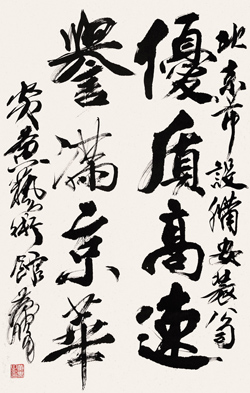 北京市設備安裝公司
優質高速
譽滿京華
炎黃藝術館黃胄